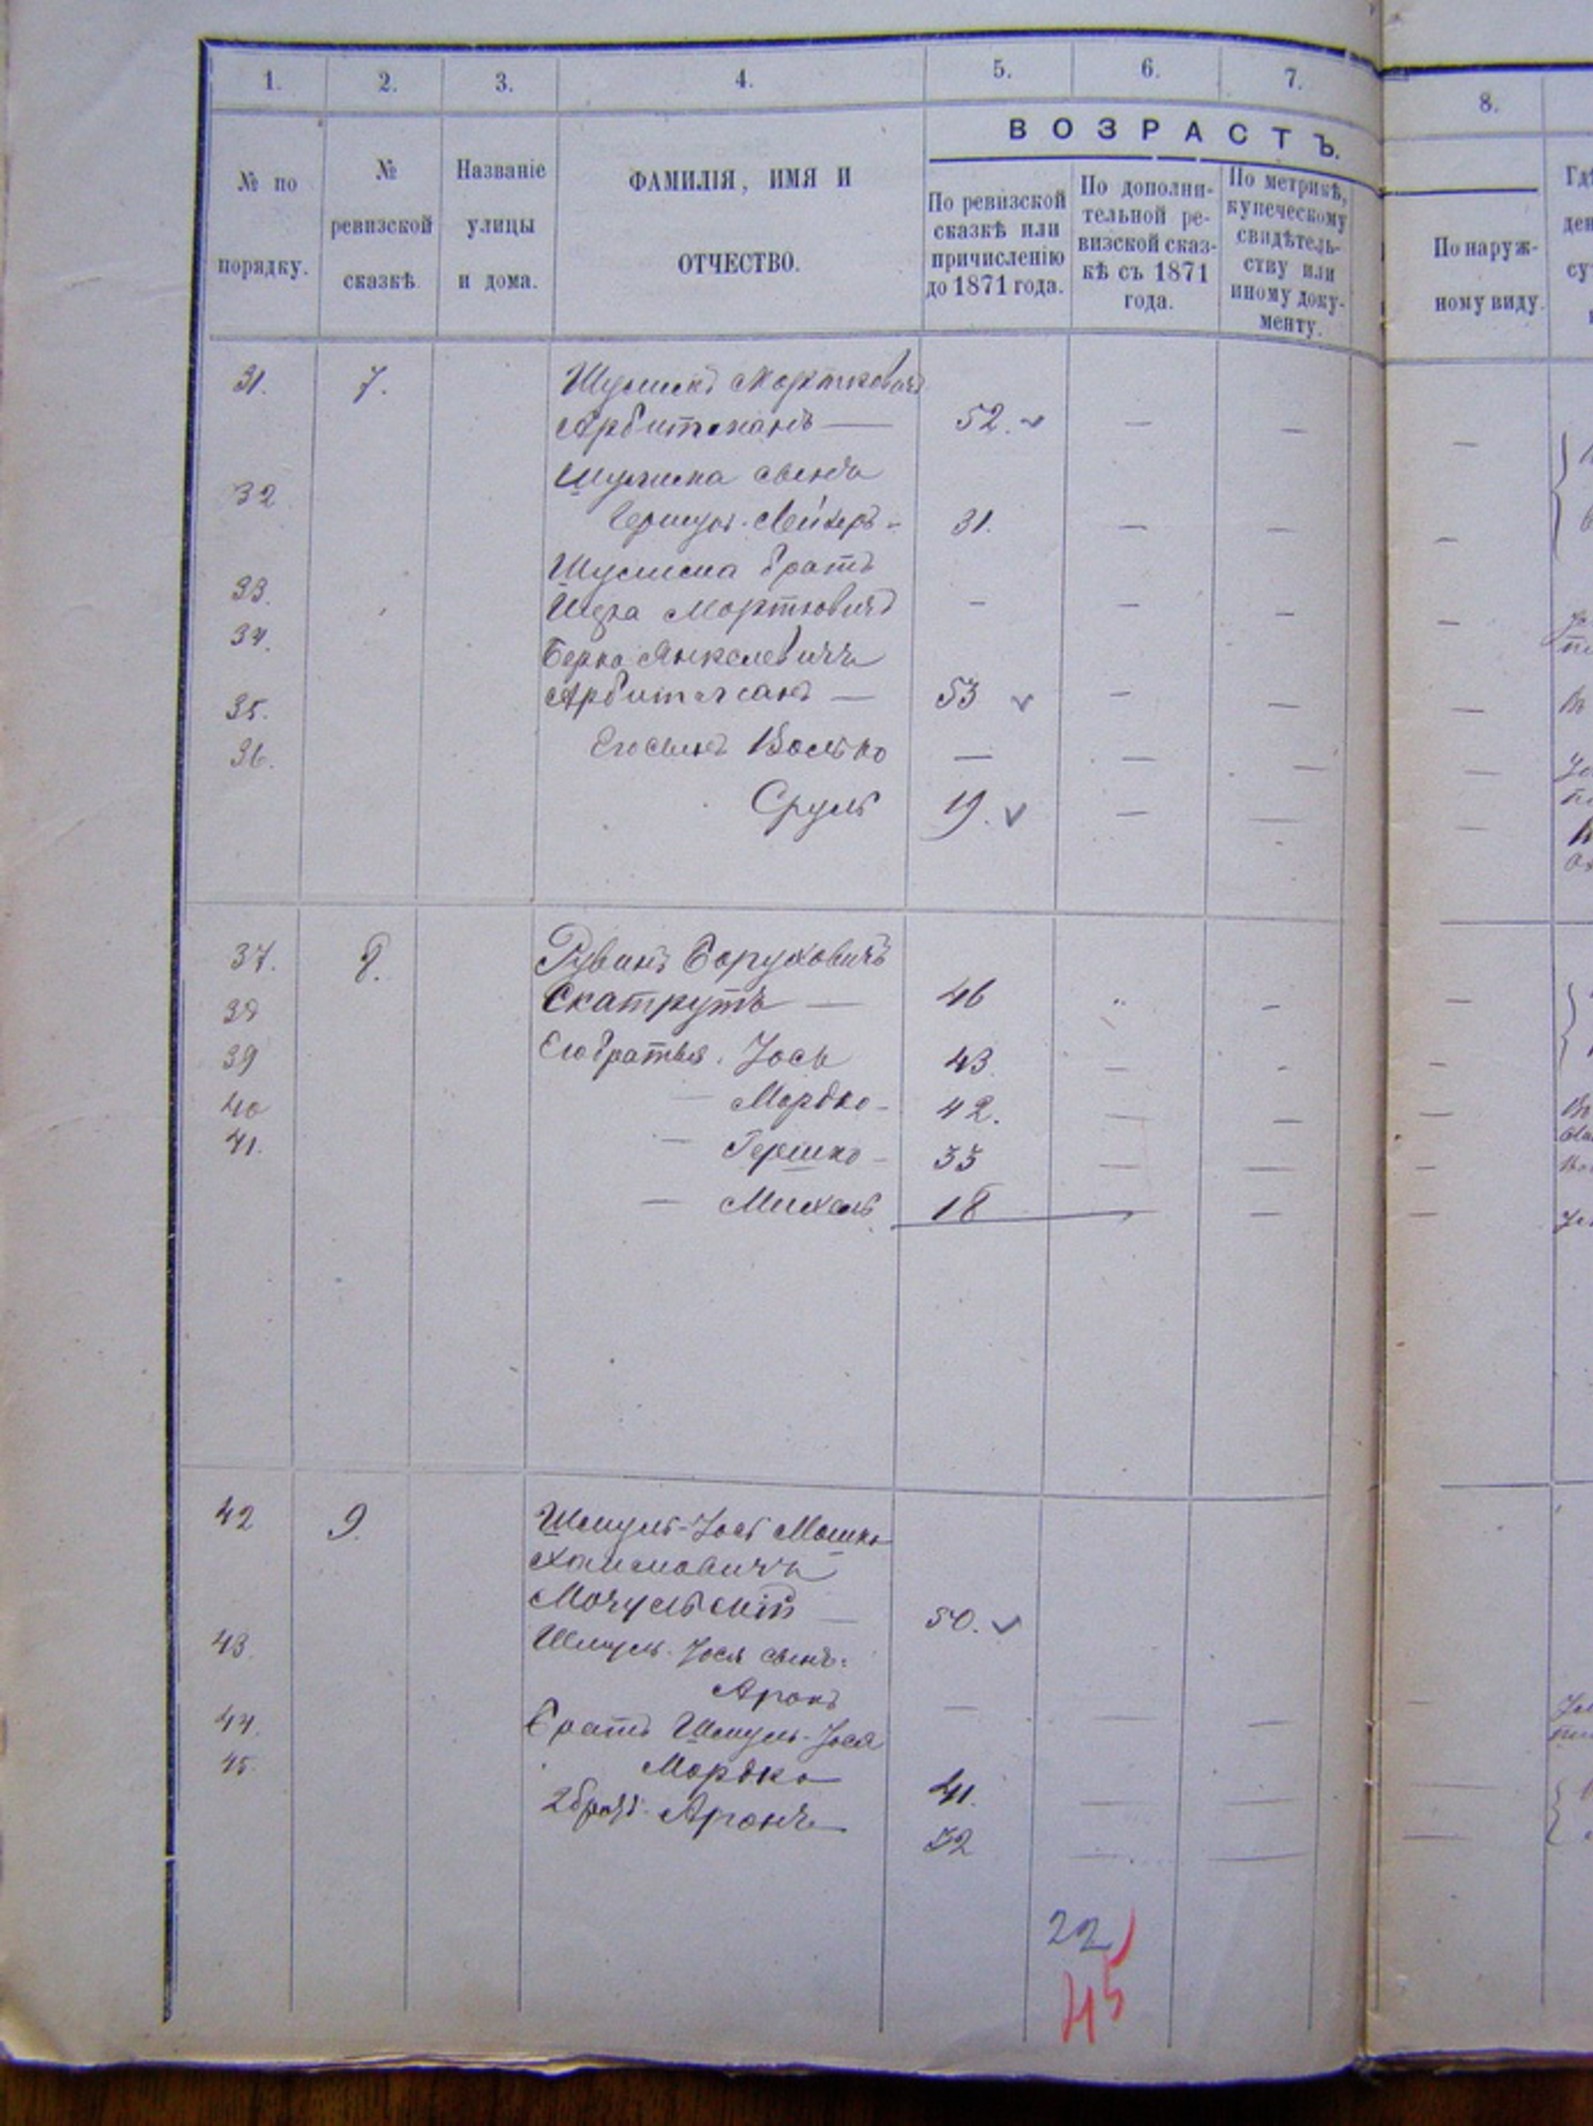 1. 2. 3. 4. 5. 6. 7. 8.
ВОЗРАСТЪ.
№ по порядку.
№ ревизской сказкѣ.
Названіе улицы и дома.
ФАМИЛІЯ, ИМЯ И
ОТЧЕСТВО.
По ревизской сказкѣ или причисленію до 1871 года.
По дополнительной ревизской сказкѣ съ 1871 года.
По метрикѣ, купеческому свидѣтельству или иному документу.
По наружному виду.
31. 7.
Арбитманъ — 52. — —
32 сынъ
31. — —
33. братъ
Мортковичъ — — —
34. Берко Янкелевичъ
35. Арбитманъ — 53 — —
36. Его сынъ Волько — — —
Сруль 19. — —
37. 8. Рувинъ Боруховичъ
38 Скатрутъ — 46 —
39 Его братья. Іось 43. — -
40 — Мордко - 42. — —
41. — Гершко - 33 — —
— Михель 18 —
42 9. Шмуль-Іось Мошко
Хаимовичъ
Мочульскій — 50.
43. Шмуль-Іося сынъ:
Аронъ — — —
44. Братъ Шмуль-Іося
45. Мордко 41. — —
2 братъ Аронъ 32 — —
22
45